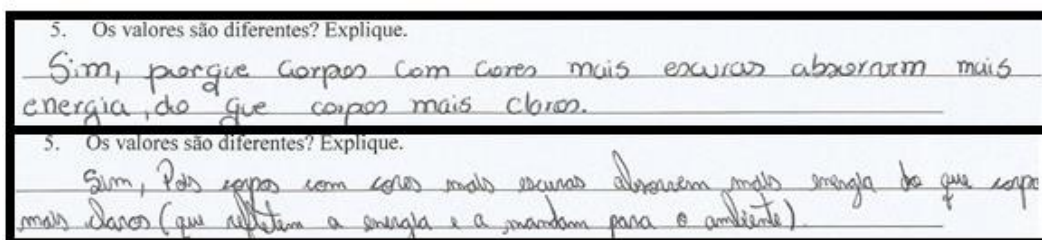 5. Os valores são diferentes? Explique.
Sim, porque corpos com cores mais escuras absorvem mais
energia, do que corpos mais claros.
5. Os valores são diferentes? Explique.
Sim, Pois corpos com cores mais escuras absorvem mais energia do que corpo
mais claros (que refletem a energia e a mandam para o ambiente).